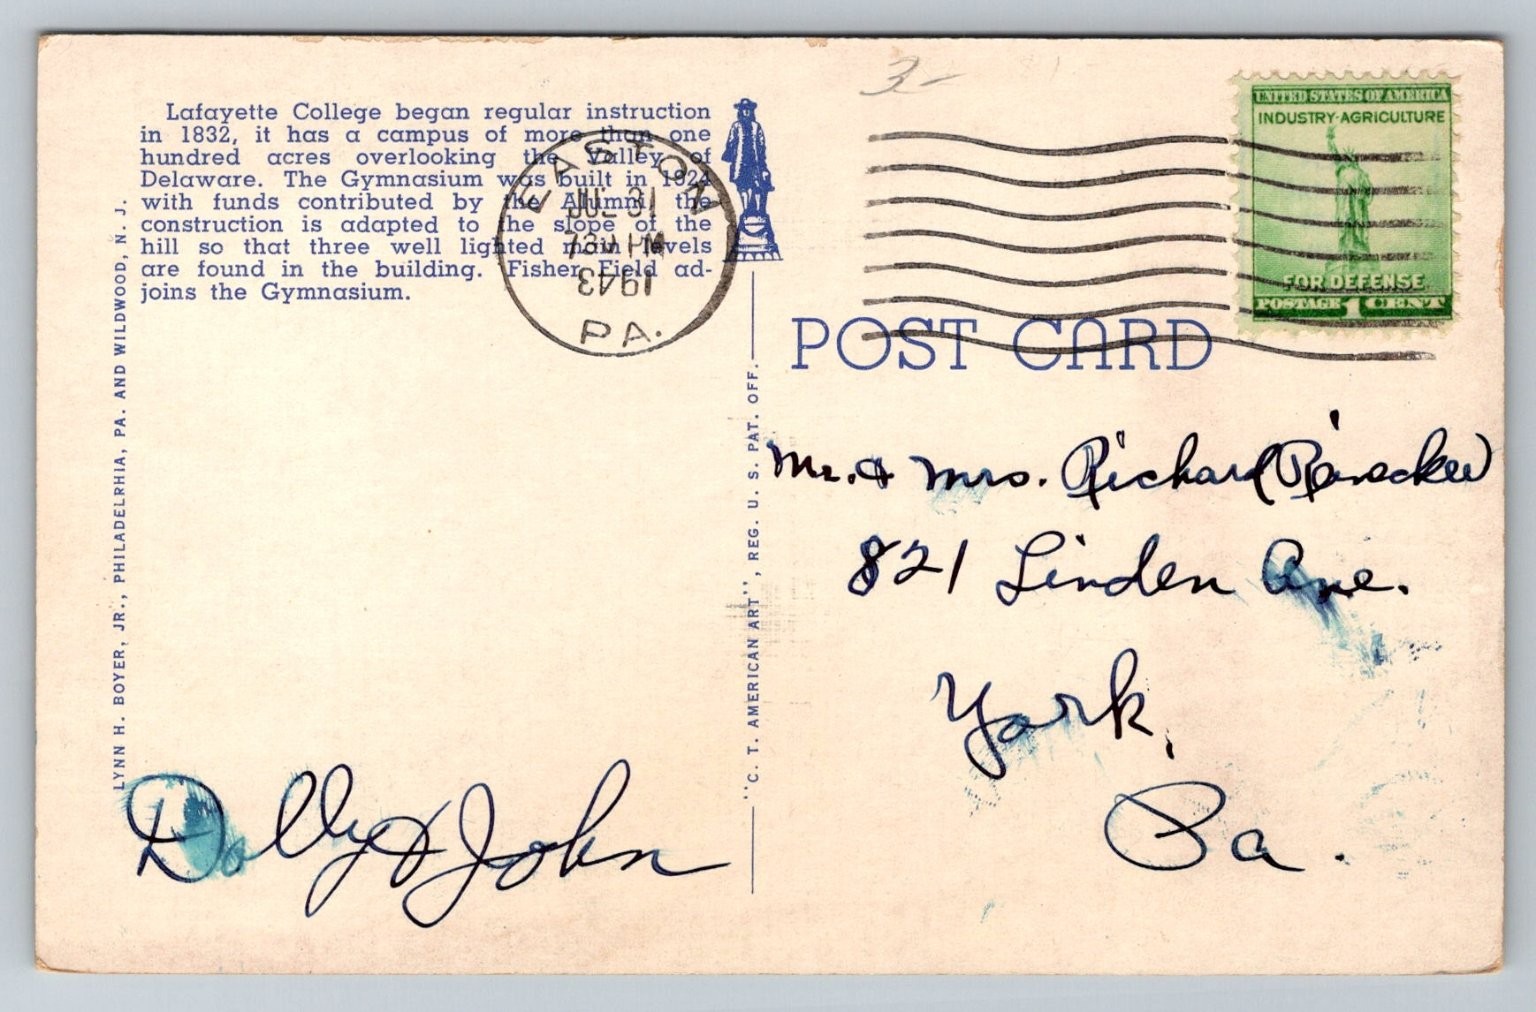 3-
Lafayette College began regular instruction
in 1832, it has a campus of more than one
hundred acres overlooking the Valley of
Delaware. The Gymnasium was built in 1924
with funds contributed by the Alumni, the
construction is adapted to the slope of the
hill so that three well lighted main levels
are found in the building. Fisher Field ad-
joins the Gymnasium.
LYNN H. BOYER, JR., PHILADELRHIA, PA. AND WILDWOOD, N. J.
EASTON
JUL 31
730 PM
1943
PA.
UNITED STATES OF AMERICA
INDUSTRY·AGRICULTURE
FOR DEFENSE
POSTAGE 1 CENT
POST CARD
"C. T. AMERICAN ART", REG. U. S. PAT. OFF.
Mr. & Mrs. Richard
821 Linden Ave.
York,
Pa.
Dolly & John